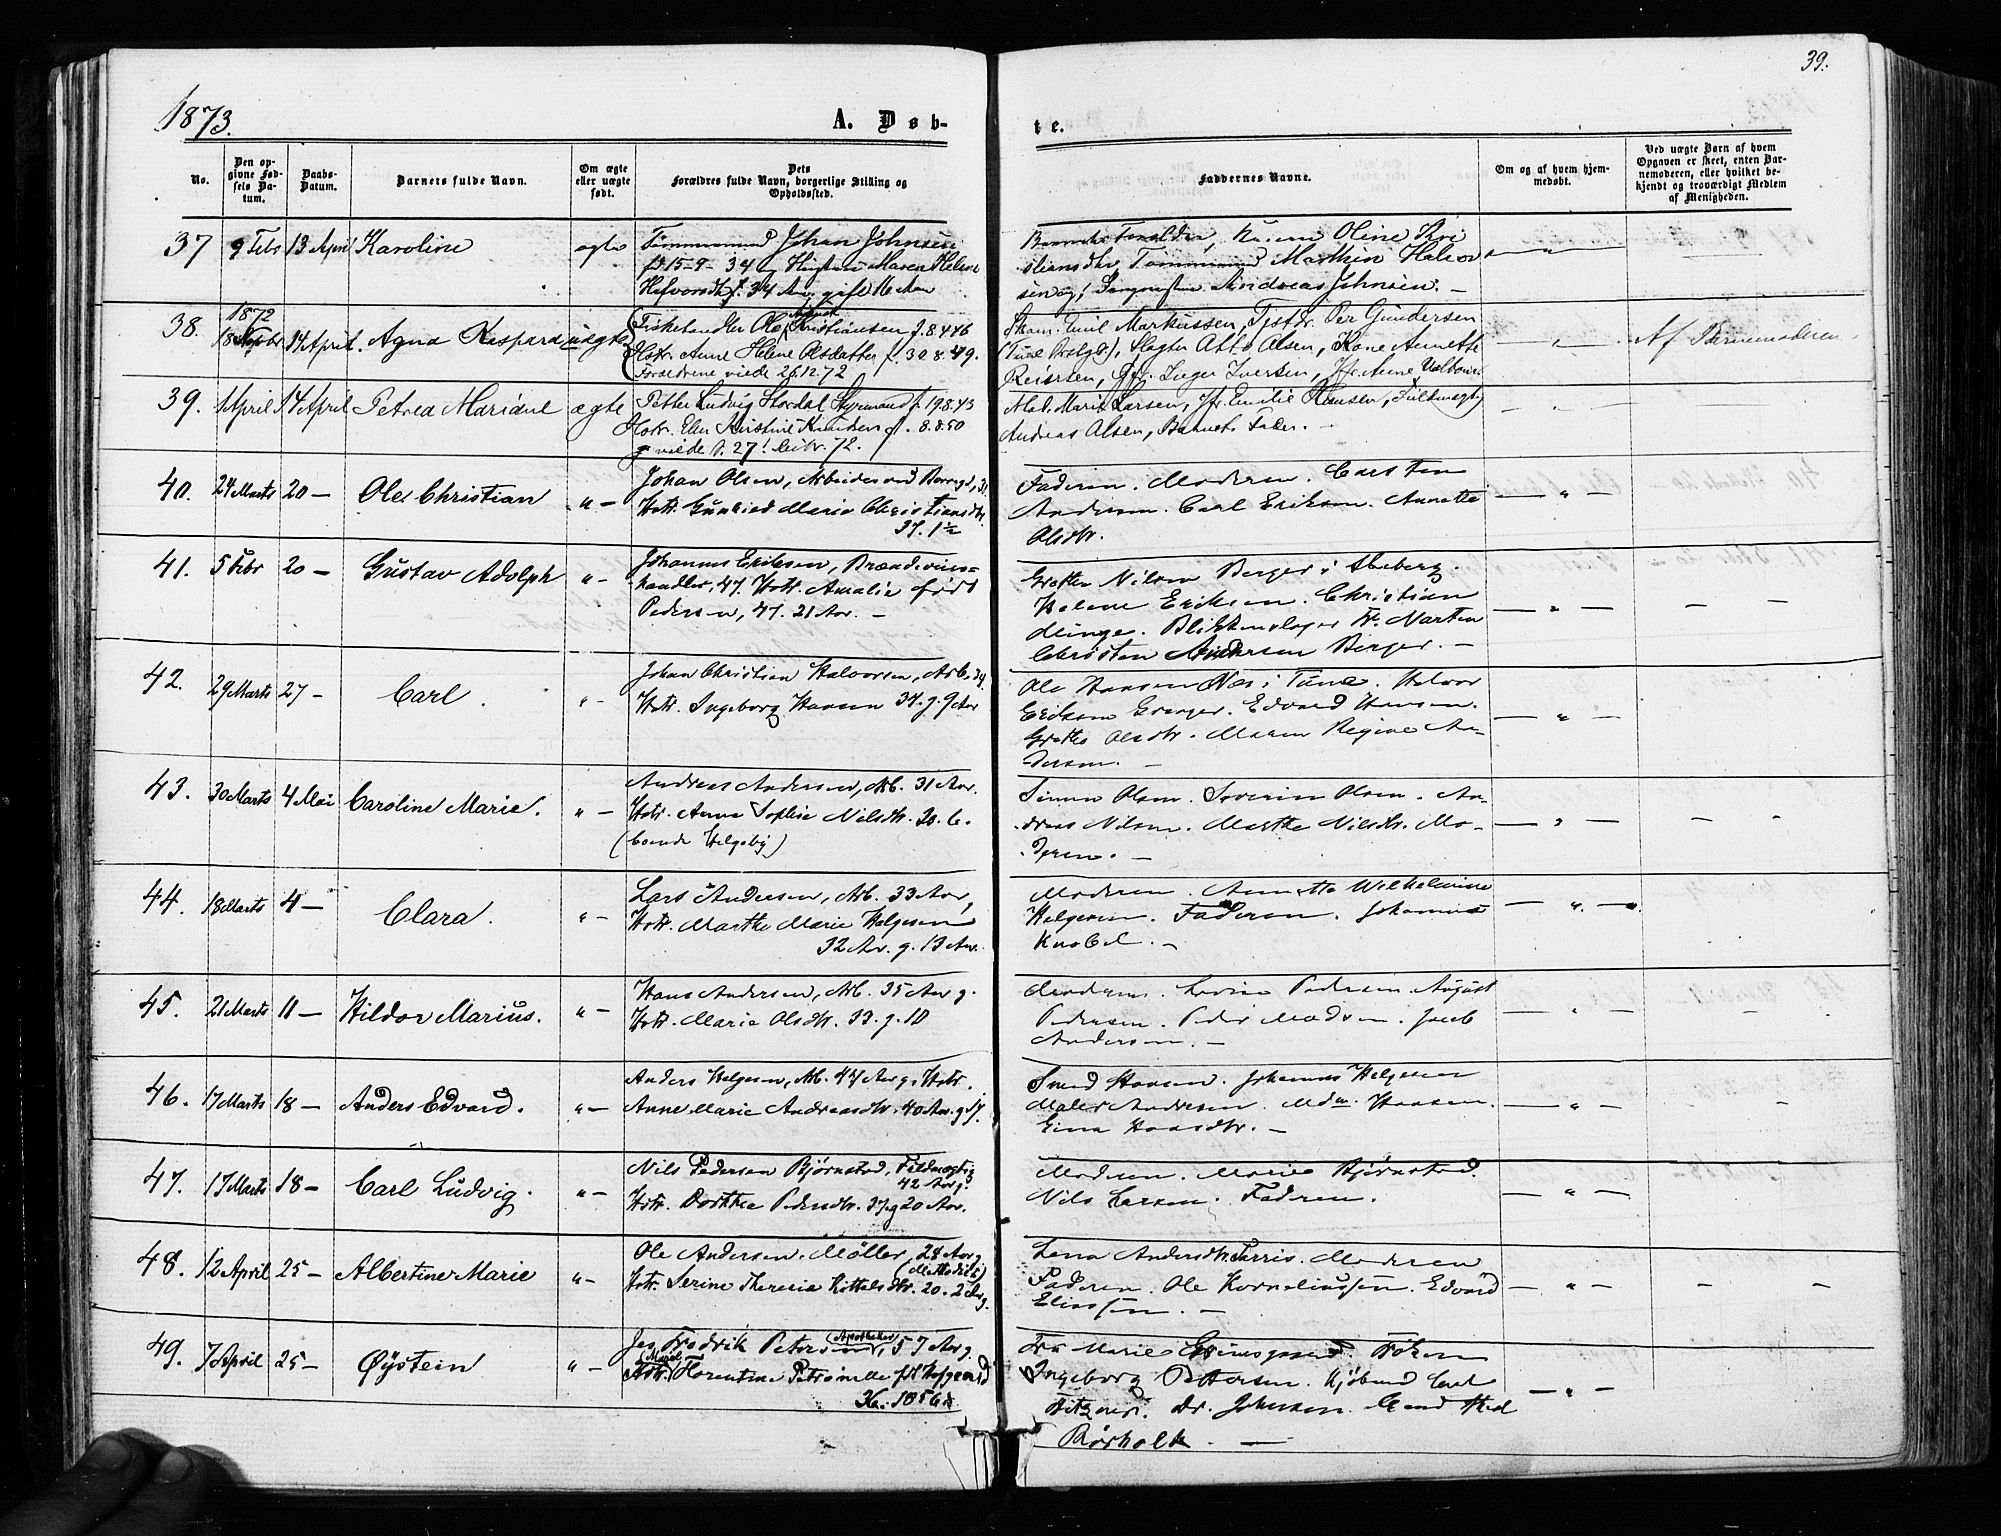 39.
1873.
A. Døb-
te.
No.
Den opgivne Fødsels Datum.
Daabs-Datum.
Barnets fulde Navn.
Om ægte eller uægte født.
Dets Forældres fulde Navn, borgerlige Stilling og Opholdssted.
Faddernes Navne.
Om og af hvem hjemmedøbt.
Ved uægte Børn af hvem Opgaven er skeet, enten Barnemoderen, eller hvilket bekjendt og troværdigt Medlem af Menigheden.
37 9 Febr 13 April Karoline ægte Tømmermand Johan Johnsen
fd 15-9-34 og Hustru Maren Helene
34 Aar gift 16 Aar
Oline
Tømmermand
Andreas Johnsen. —
38. 1872 18 14 April. Agna uægte Fiskehandler Ole August Kristiansen f. 8.4.46
Hstr. Anne Helene Olsdatter f. 30.8.49.
Forældrene viede 26.12.72
Emil Markussen, Per Gundersen
Otto Olsen, Kone Annette
Reiersen, Inger Iversen, Jfr. Anne
Af Barnemoderen.
39. 1 April 14 April Petrea ægte Petter Ludvig Stordal Styrmand f. 19.8.43
Hstr. Knudsen f. 8.8.50
viede d. 27! 72.
Mad. Marie Larsen, Jfr. Emilie Hansen,
Andreas Olsen, Barnets Fader. —
40. 24 Marts 20 — Ole Christian " — Johan Olsen, Arbeidsmand
Hstr. Gunhild Marie Christiansdtr.
37. 1½
Faderen. Moderen. Carsten
Andersen. Carl Eriksen. Annette
Olsdtr.
41. 5 Febr 20 — Gustav Adolph " — Johannes Eriksen, Brændeviins-
handler, 47. Hstr. Amalie født
Pedersen, 47. 21 Aar. —
Nilsen Berger i Skeberg.
Helene Eriksen. Christian
Blikkenslager Fr. Morten
Andersen Berger. —
42. 29 Marts 27 — Carl. " — Johan Christian Halvorsen, Arb. 34.
Hstr. Ingeborg Hansen 34. g. 9 Aar
Ole Hansen Næs i Tune. Halvor
Eriksen Edvard Hansen.
Grethe Olsdtr. Maren Regine An-
dersen. —
43. 30 Marts 4 Mai Caroline Marie. " — Andreas Andersen, Arb. 31 Aar.
Hstr. Anne Sophie Nilsdtr. 30. 6.
(boende Helgeby)
Simen Olsen. Severin Olsen. An-
dreas Nilsen. Marthe Nilsdtr. Mo-
deren. —
44. 18 Marts 4 — Clara. " — Lars Andersen, Arb. 33 Aar,
Hstr. Marthe Marie Helgesen
32 Aar. g. 13 Aar.
Moderen. Annette Wilhelmine
Helgesen. Faderen. Johannes
Knobel. —
45. 21 Marts 11 — Hildor Marius. " — Hans Andersen, Arb. 35 Aar g.
Hstr. Marie Olsdtr. 33. g. 10
Moderen. Lovise Pedersen. August
Pedersen. Peder Madsen. Jacob
Andersen. —
46. 17 Marts 18 — Anders Edvard. " — Anders Helgesen, Arb. 47 Aar g. Hstr.
Anne Marie Andreasdtr. 40 Aar. g 17.
Smed Hansen. Johannes Helgesen
Maler Andersen. Mdm. Hansen.
Hansdtr. —
47. 17 Marts 18 — Carl Ludvig. " — Nils Pedersen Bjørnstad, Fuldmægtig
42 Aar g.
Hstr. Dorthea Pedersdtr. 37 g 20 Aar.
Moderen. Marie Bjørnstad.
Nils Larsen. Faderen.
48. 12 April 25 — Albertine Marie " — Ole Andersen. Møller, 28 Aar g
(Methodist)
Hstr. Serine Theresia Kittelsdtr. 20. 2 Aar g.
Lena Andersdtr. Torris. Moderen
Faderen. Ole Korneliussen. Edvard
Eliassen. —
49. 7 April 25 — Øystein " — Fredrik Petersen, (Apotheker) 57 Aar g.
Hstr. Marie Florentine Petronelle fd Hofgaard
36. 1856
Fr. Marie Frøken
Ingeborg Pettersen. Kjøbmd Carl
Dr. Johnsen. Cand Med
—